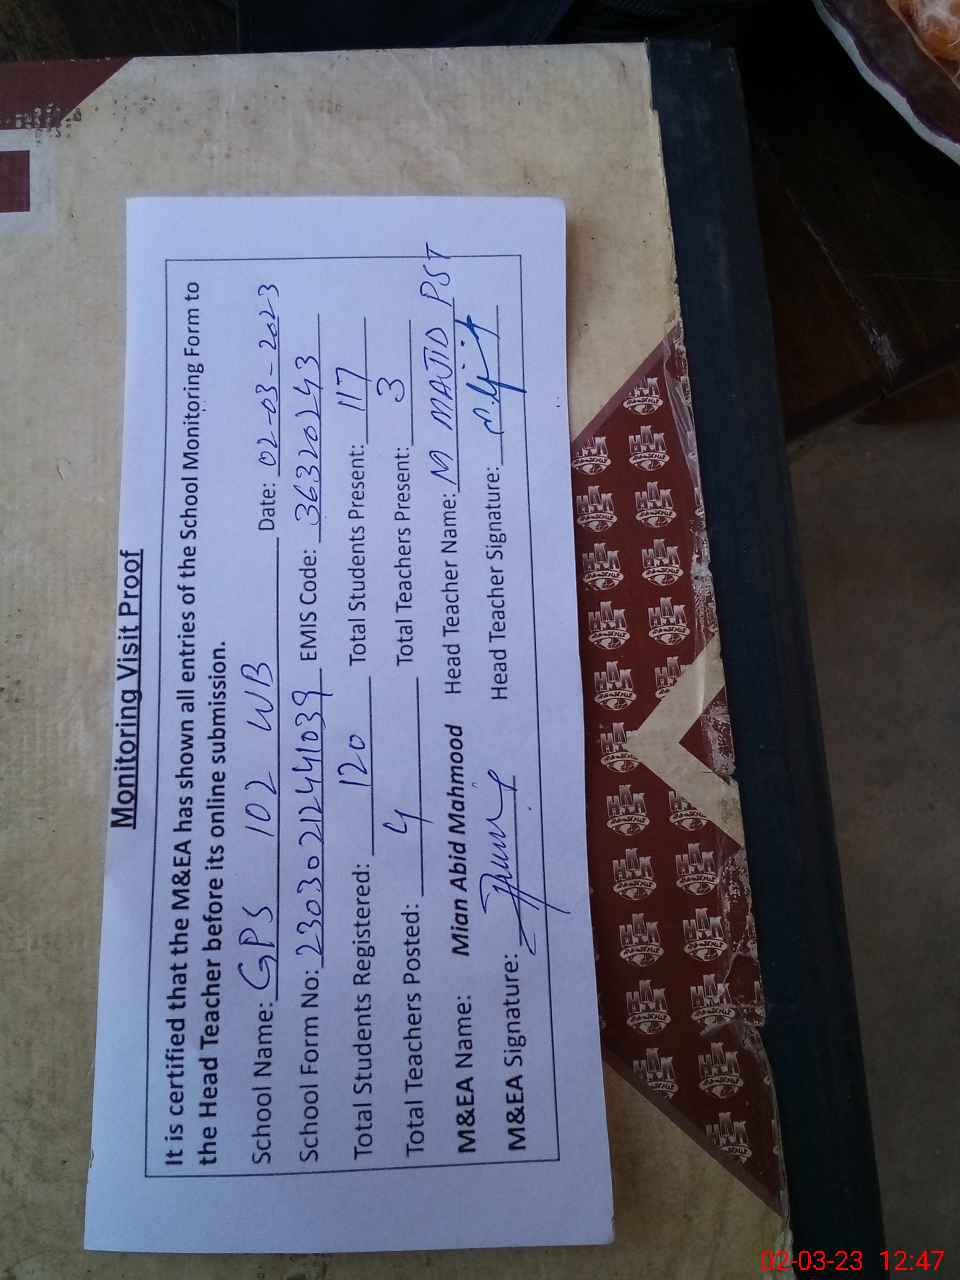 Monitoring Visit Proof
It is certified that the M&EA has shown all entries of the School Monitoring Form to
the Head Teacher before its online submission.
School Name: GPS 102 WB Date: 02-03-2023
School Form No: 23030212441039 EMIS Code: 36320243
Total Students Registered: 120 Total Students Present: 117
Total Teachers Posted: 4 Total Teachers Present: 3
M&EA Name: Mian Abid Mahmood Head Teacher Name: M MAJID PST
M&EA Signature: Head Teacher Signature:
HAK
02-03-23 12:47